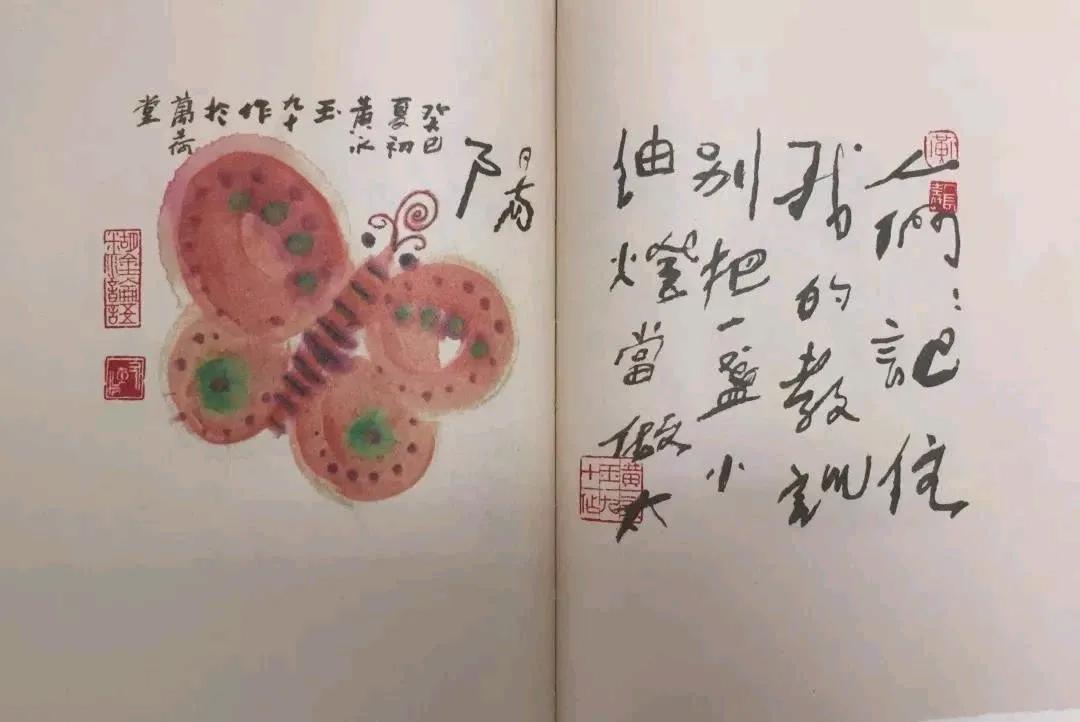 人們：記住
我的教訓
別把一盞小
油燈當做太
陽
癸巳
夏初
黃永
玉
九十
作
於
萬荷
堂
黃永玉九十作